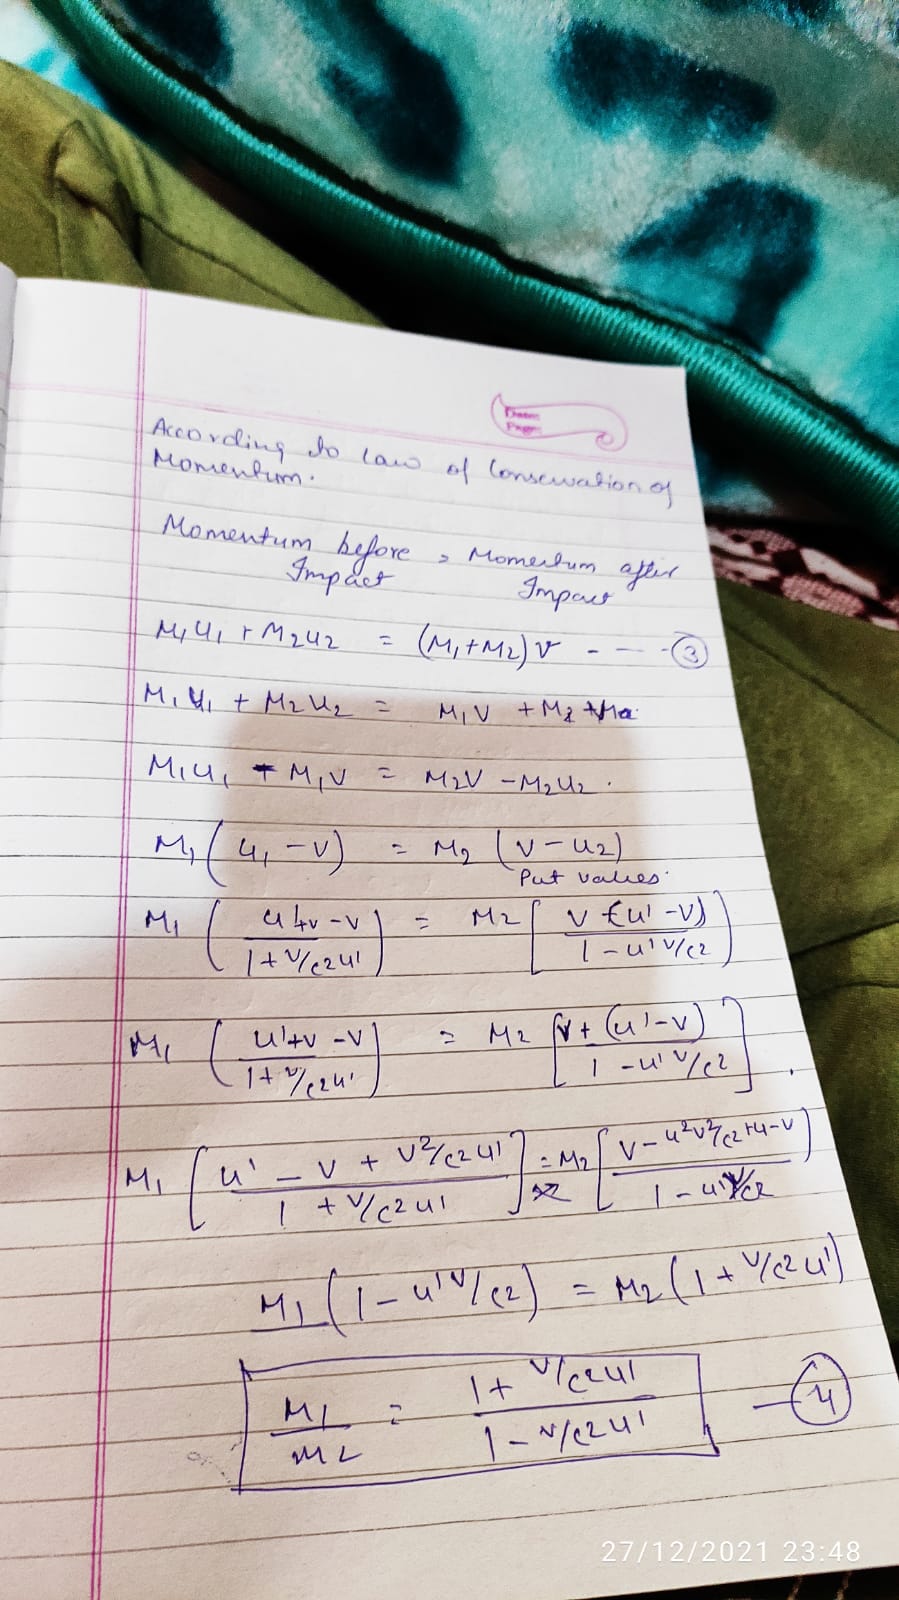 Date:
Page:
According to law of Conservation of
Momentum.
Momentum before = Momentum after
Impact Impact
M1u1 + M2u2 = (M1+M2)v - - - (3)
M1u1 + M2u2 = M1v + M2
M1u1 - M1v = M2v - M2u2.
M1(u1 - v) = M2(v - u2)
Put values.
M1 ( u'+v - v / 1 + v/c2 u' ) = M2 [ v - (u' - v) / 1 - u'v/c2 ]
M1 ( u'+v - v / 1 + v/c2 u' ) = M2 [ v + (u' - v) / 1 - u'v/c2 ].
M1 [ u' - v + v2/c2 u' / 1 + v/c2 u' ] = M2 [ v - u2v2/c2 + u - v / 1 - u'v/c2 ]
M1 (1 - u'v/c2) = M2 (1 + v/c2 u')
M1 / M2 = 1 + v/c2 u' / 1 - v/c2 u' — (4)
27/12/2021 23:48